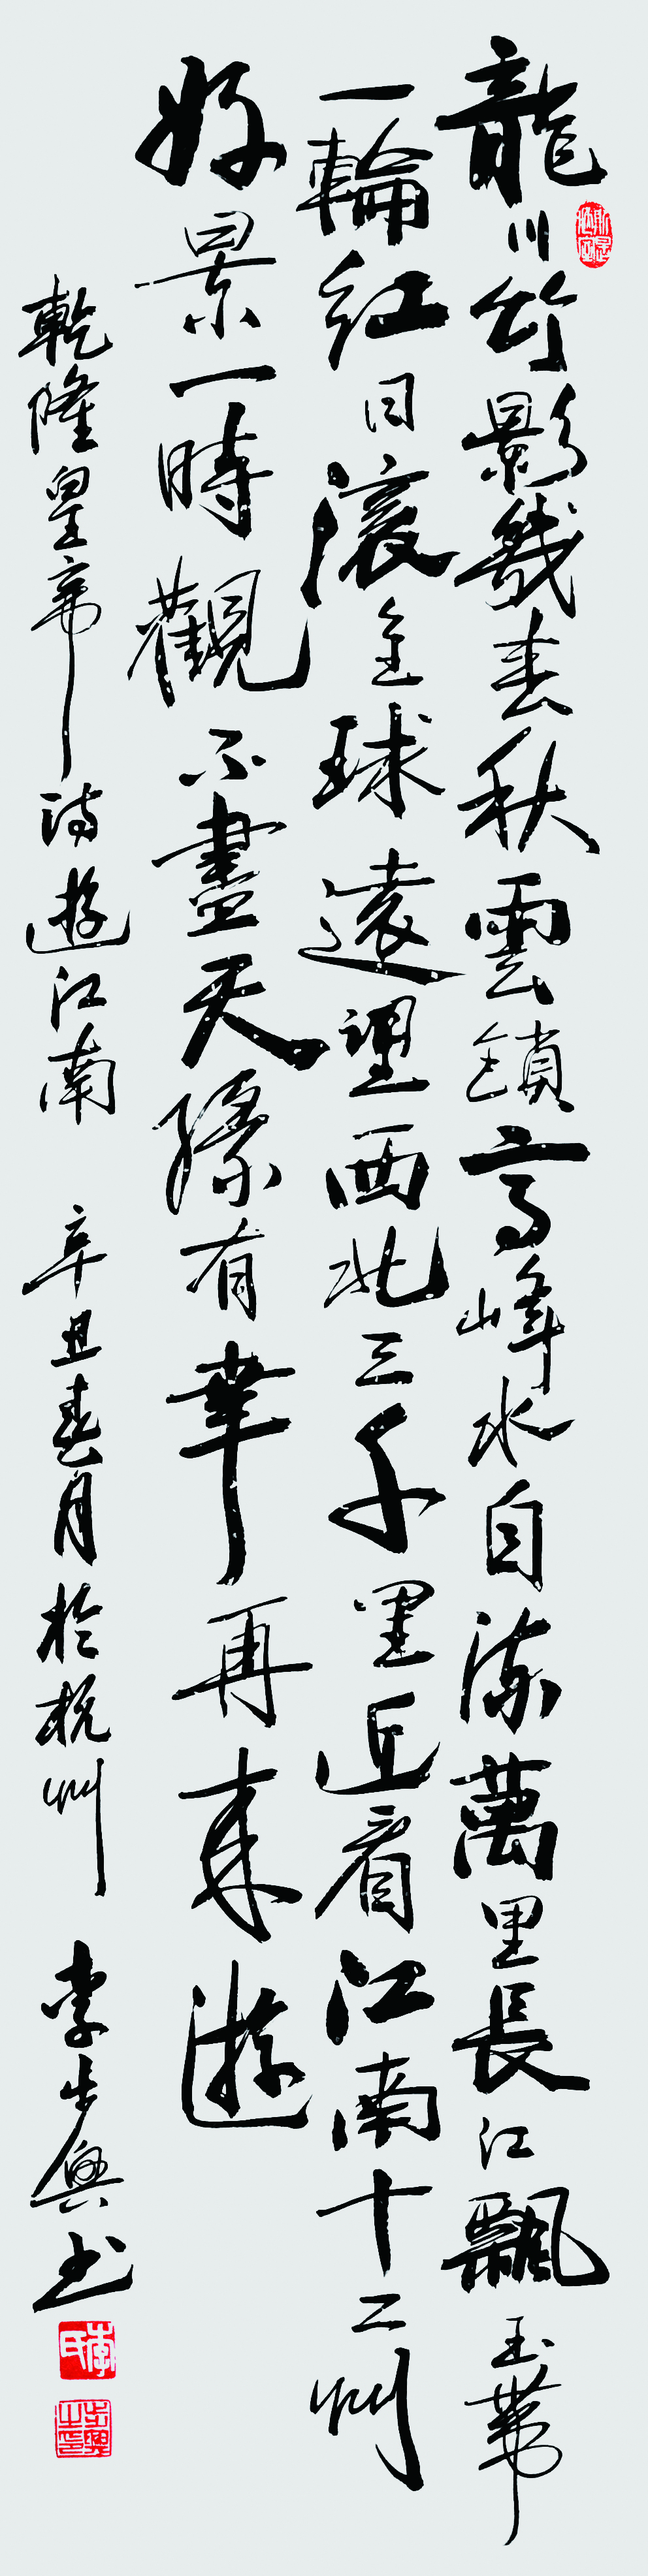 龍川竹影幾春秋雲鎖高峰水自流萬里長江飄玉帶
一輪紅日滾全球遠望西北三千里近看江南十二州
好景一時觀不盡天緣有幸再來遊
乾隆皇帝詩遊江南 辛丑春月於杭州 李步興书
李氏
步興之印